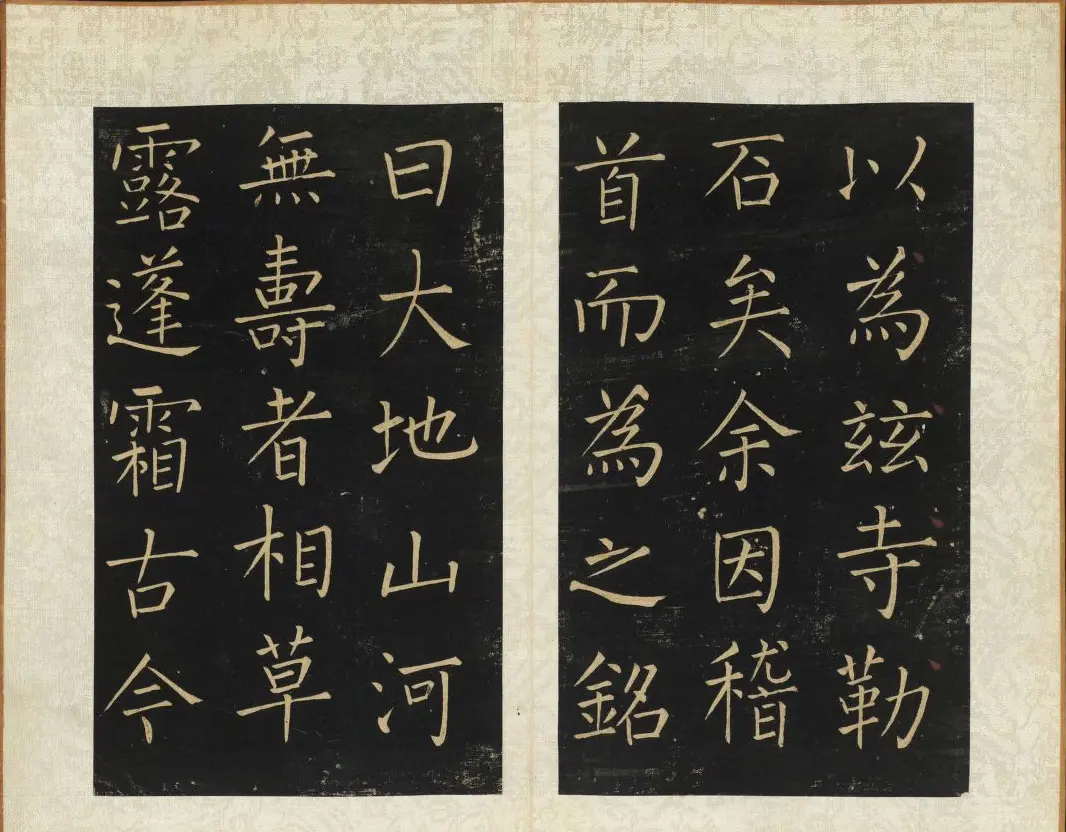 以為玆寺勒
石矣余因稽
首而為之銘
曰大地山河
無壽者相草
露蓬霜古今